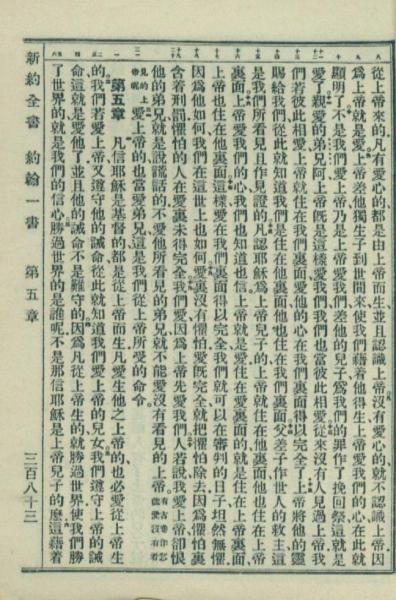 從上帝來的凡有愛心的都是由上帝而生並且認識上帝沒有愛心的就不認識上帝因
爲上帝就是愛上帝差他獨生子到世間來使我們藉着他得生上帝愛我們的心在此就
顯明了不是我們愛上帝乃是上帝愛我們差他的兒子爲我們的罪作了挽回祭這就是
愛了親愛的弟兄阿上帝旣是這樣愛我們我們也當彼此相愛從來沒有人見過上帝我
們若彼此相愛上帝就住在我們裏面愛他的心在我們裏面得以完全了上帝將他的靈
賜給我們從此就知道我們是住在他裏面他也住在我們裏面父差子作世人的救主這
是我們所看見且作見證的凡認耶穌爲上帝兒子的上帝就住在他裏面他也住在上帝
裏面上帝愛我們的心我們也知道也信上帝就是愛住在愛裏面的就是住在上帝裏面
上帝也住在他裏面這樣愛在我們裏面得以完全我們就可以在審判的日子坦然無懼
因爲他如何我們在這世上也如何愛裏沒有懼怕愛旣完全就把懼怕除去因爲懼怕裏
含着刑罰懼怕的人在愛裏未得完全我們愛因爲上帝先愛我們人若說我愛上帝卻恨
他的弟兄就是說謊話的不愛他所看見的弟兄就不能愛沒有看見的上帝
有古卷作怎能愛沒有看
見的上帝呢
愛上帝的也當愛弟兄這是我們從上帝所受的命令
第五章 凡信耶穌是基督的都是從上帝而生凡愛生他之上帝的也必愛從上帝生
的我們若愛上帝又遵守他的誡命從此就知道我們愛上帝的兒女我們遵守上帝的誡
命這就是愛他了並且他的誡命不是難守的因爲凡從上帝生的就勝過世界使我們勝
了世界的就是我們的信心勝過世界的是誰呢不是那信耶穌是上帝兒子的麽這藉着
新約全書 約翰一書 第五章 三百八十三